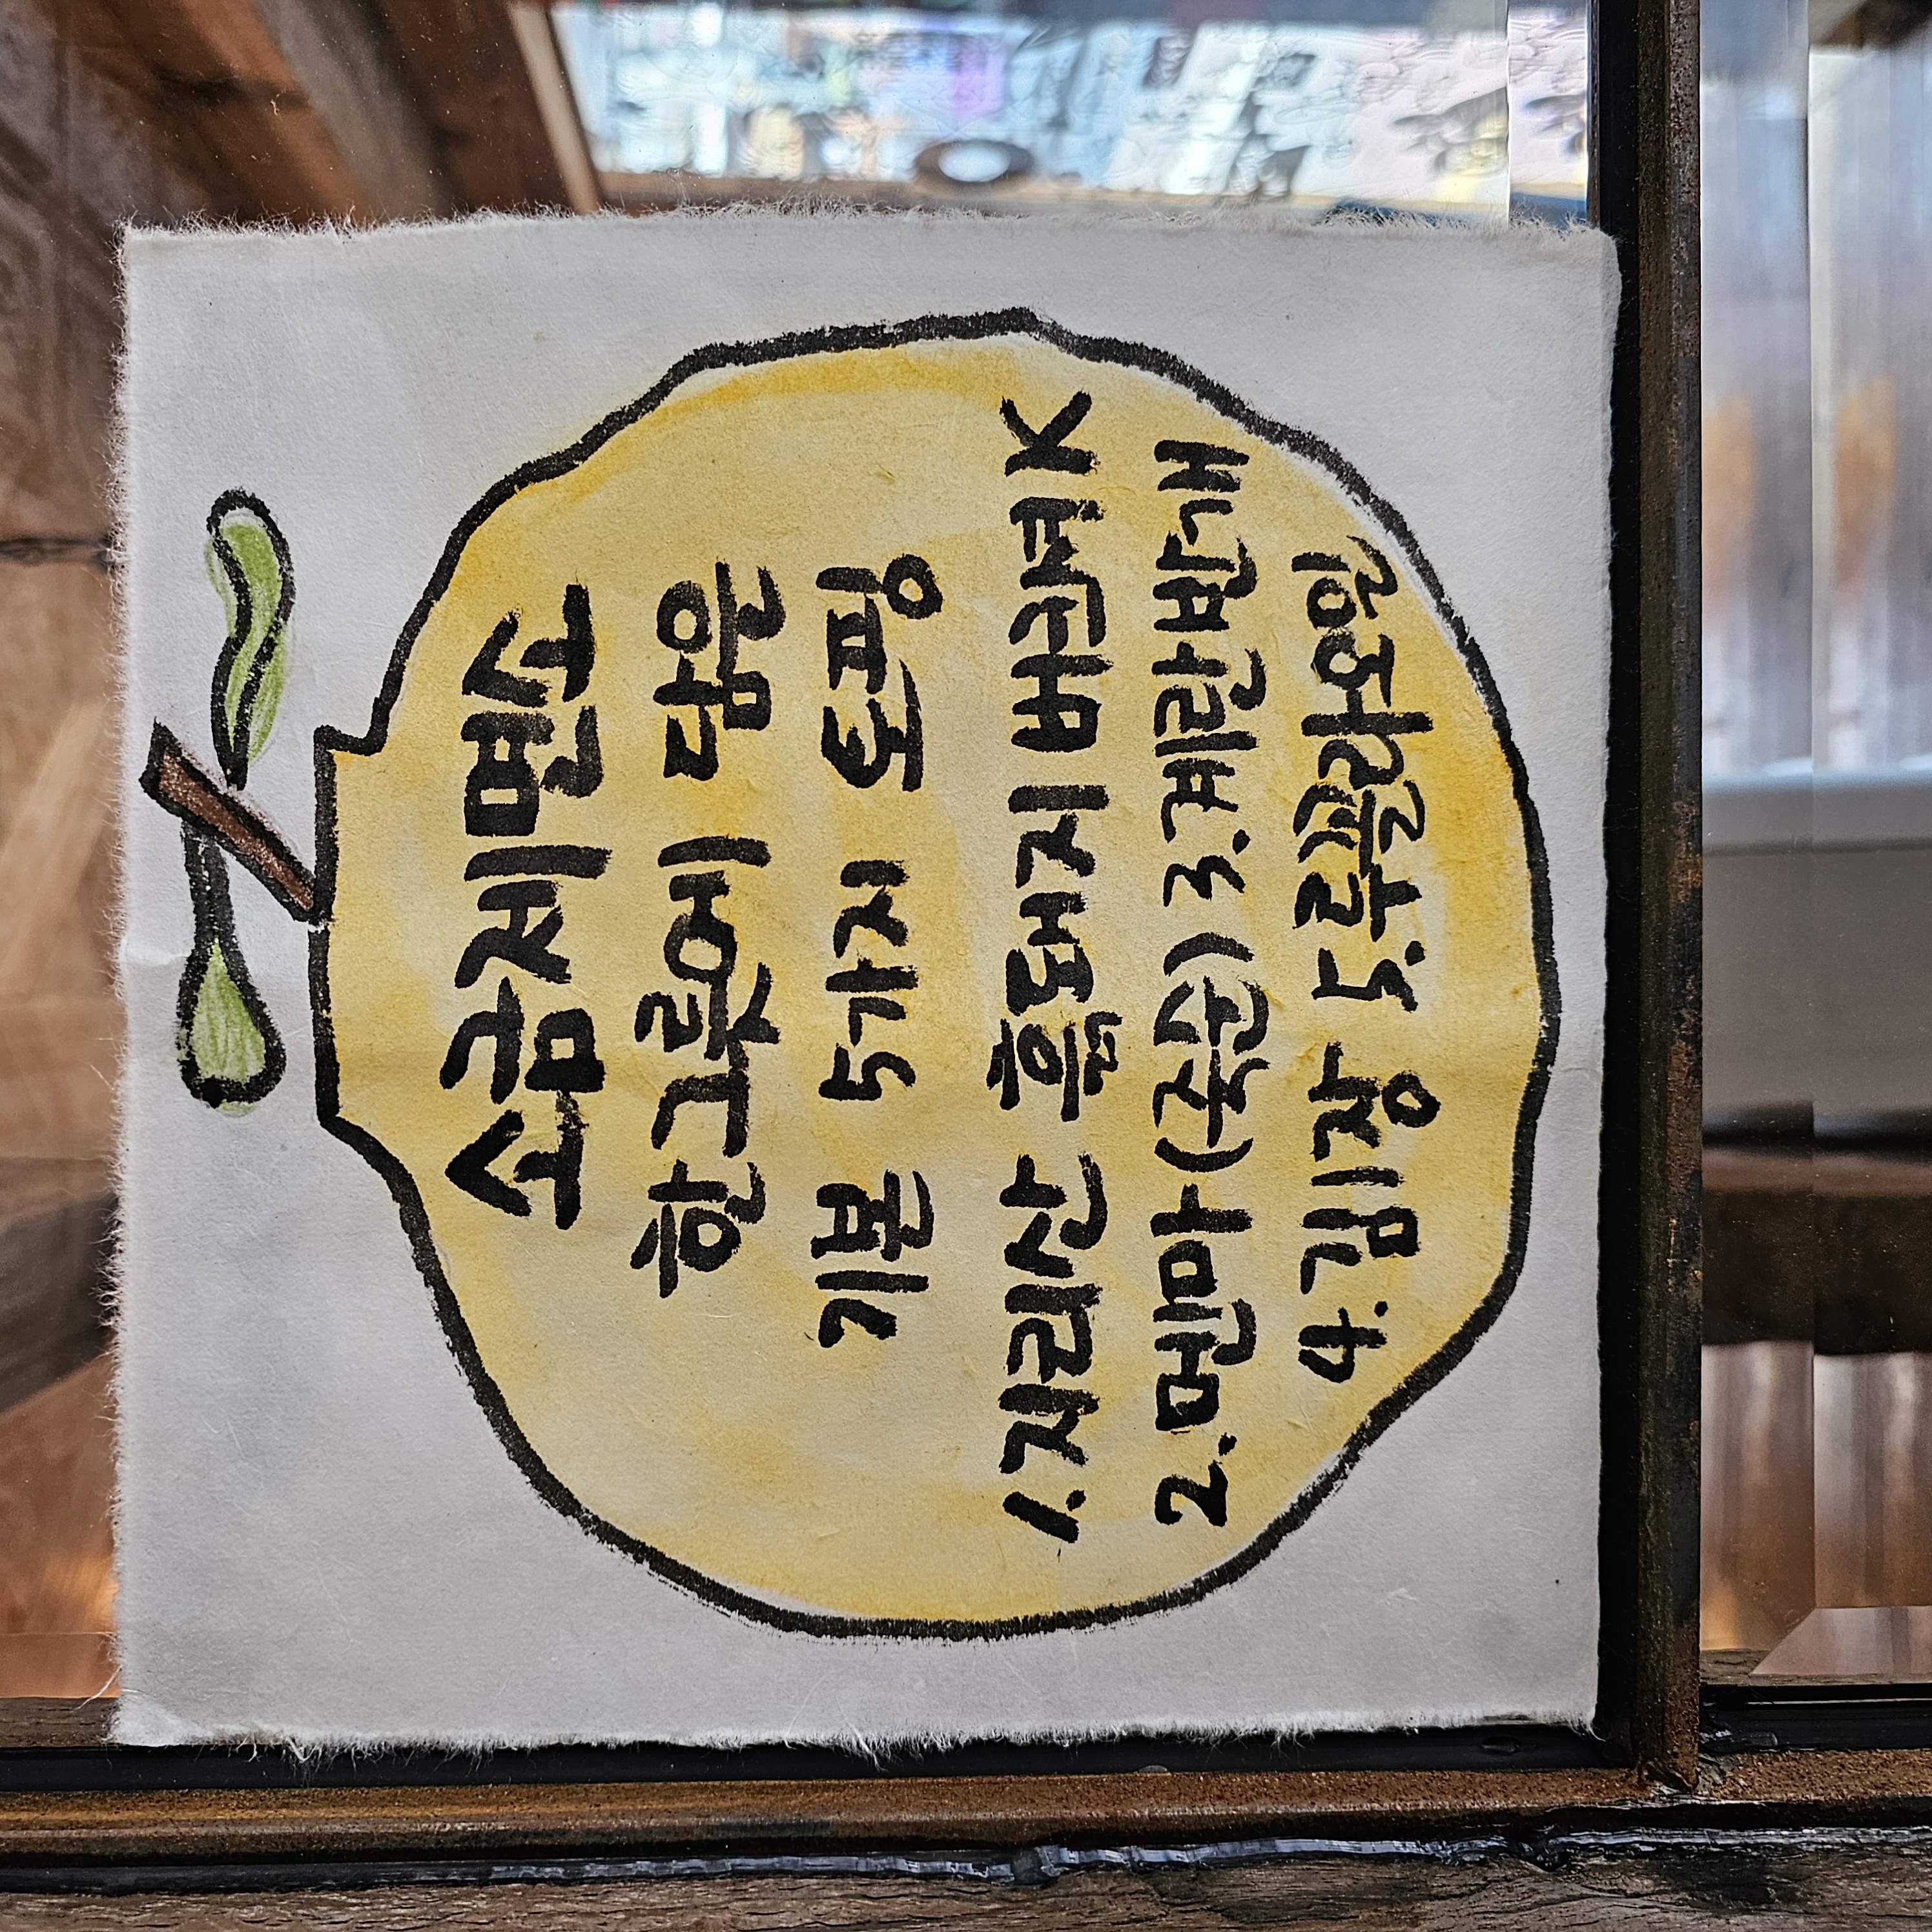 소금제면소
한그릇에 담은
기본 5가지 토핑
1. 지리산 흙돼지 버크셔K
2. 멘마(죽순) 3. 계란반개
4. 김장 5. 루꼴라오일